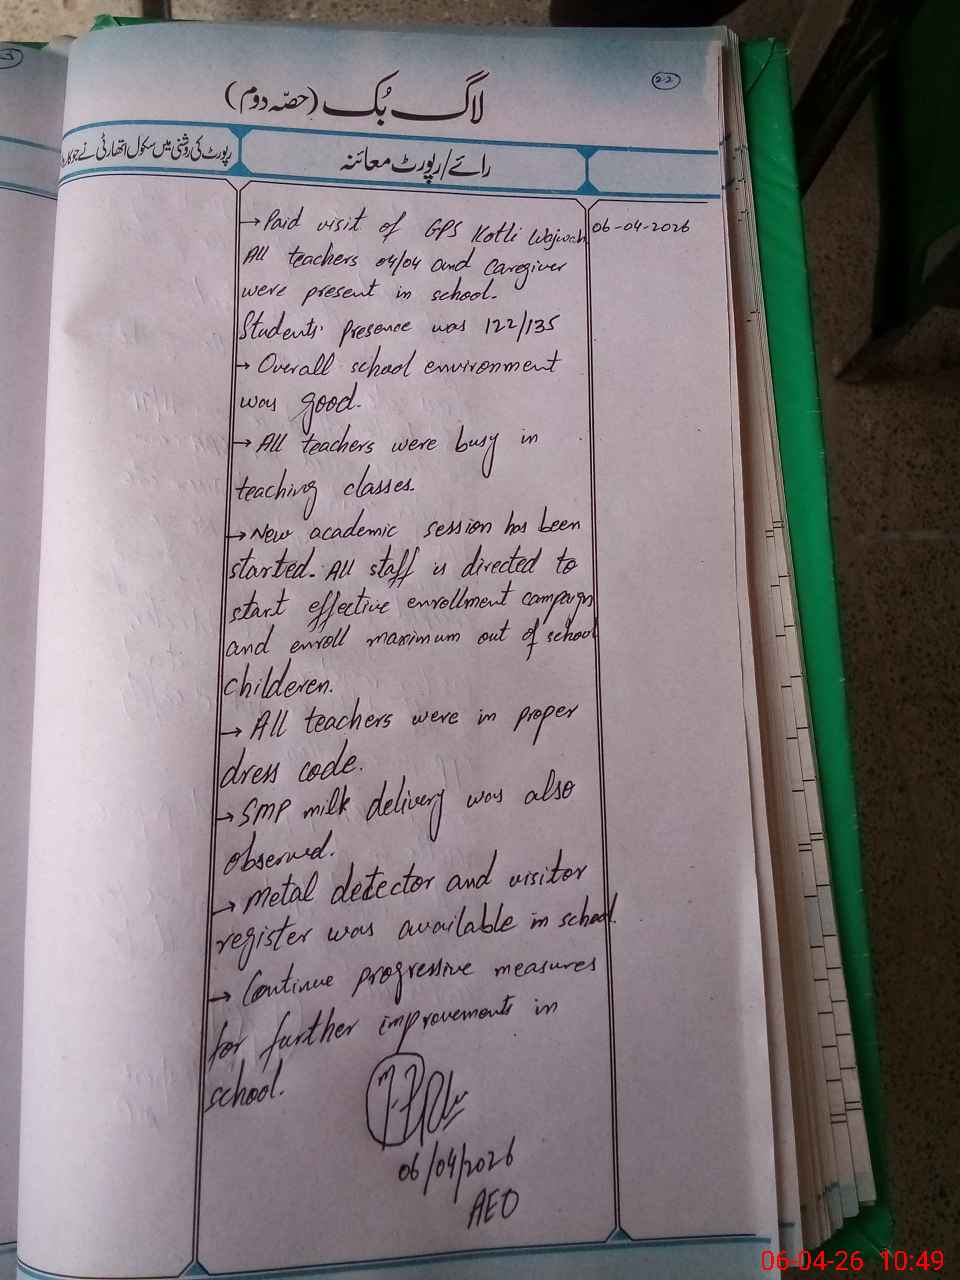 22
لاگ بُک (حصّہ دوم)
رائے/رپورٹ معائنہ
رپورٹ کی روشنی میں سکول اتھارٹی نے جو
→ Paid visit of GPS Kotli Wajwah
06-04-2026
All teachers 04/04 and caregiver
were present in school.
Students' presence was 122/135
→ Overall school environment
was good.
→ All teachers were busy in
teaching classes.
→ New academic session has been
started. All staff is directed to
start effective enrollment campaign
and enroll maximum out of school
childeren.
→ All teachers were in proper
dress code.
→ SMP milk delivery was also
observed.
→ Metal detector and visitor
register was available in school.
→ Continue progressive measures
for further improvements in
school.
06/04/2026
AEO
06-04-26 10:49